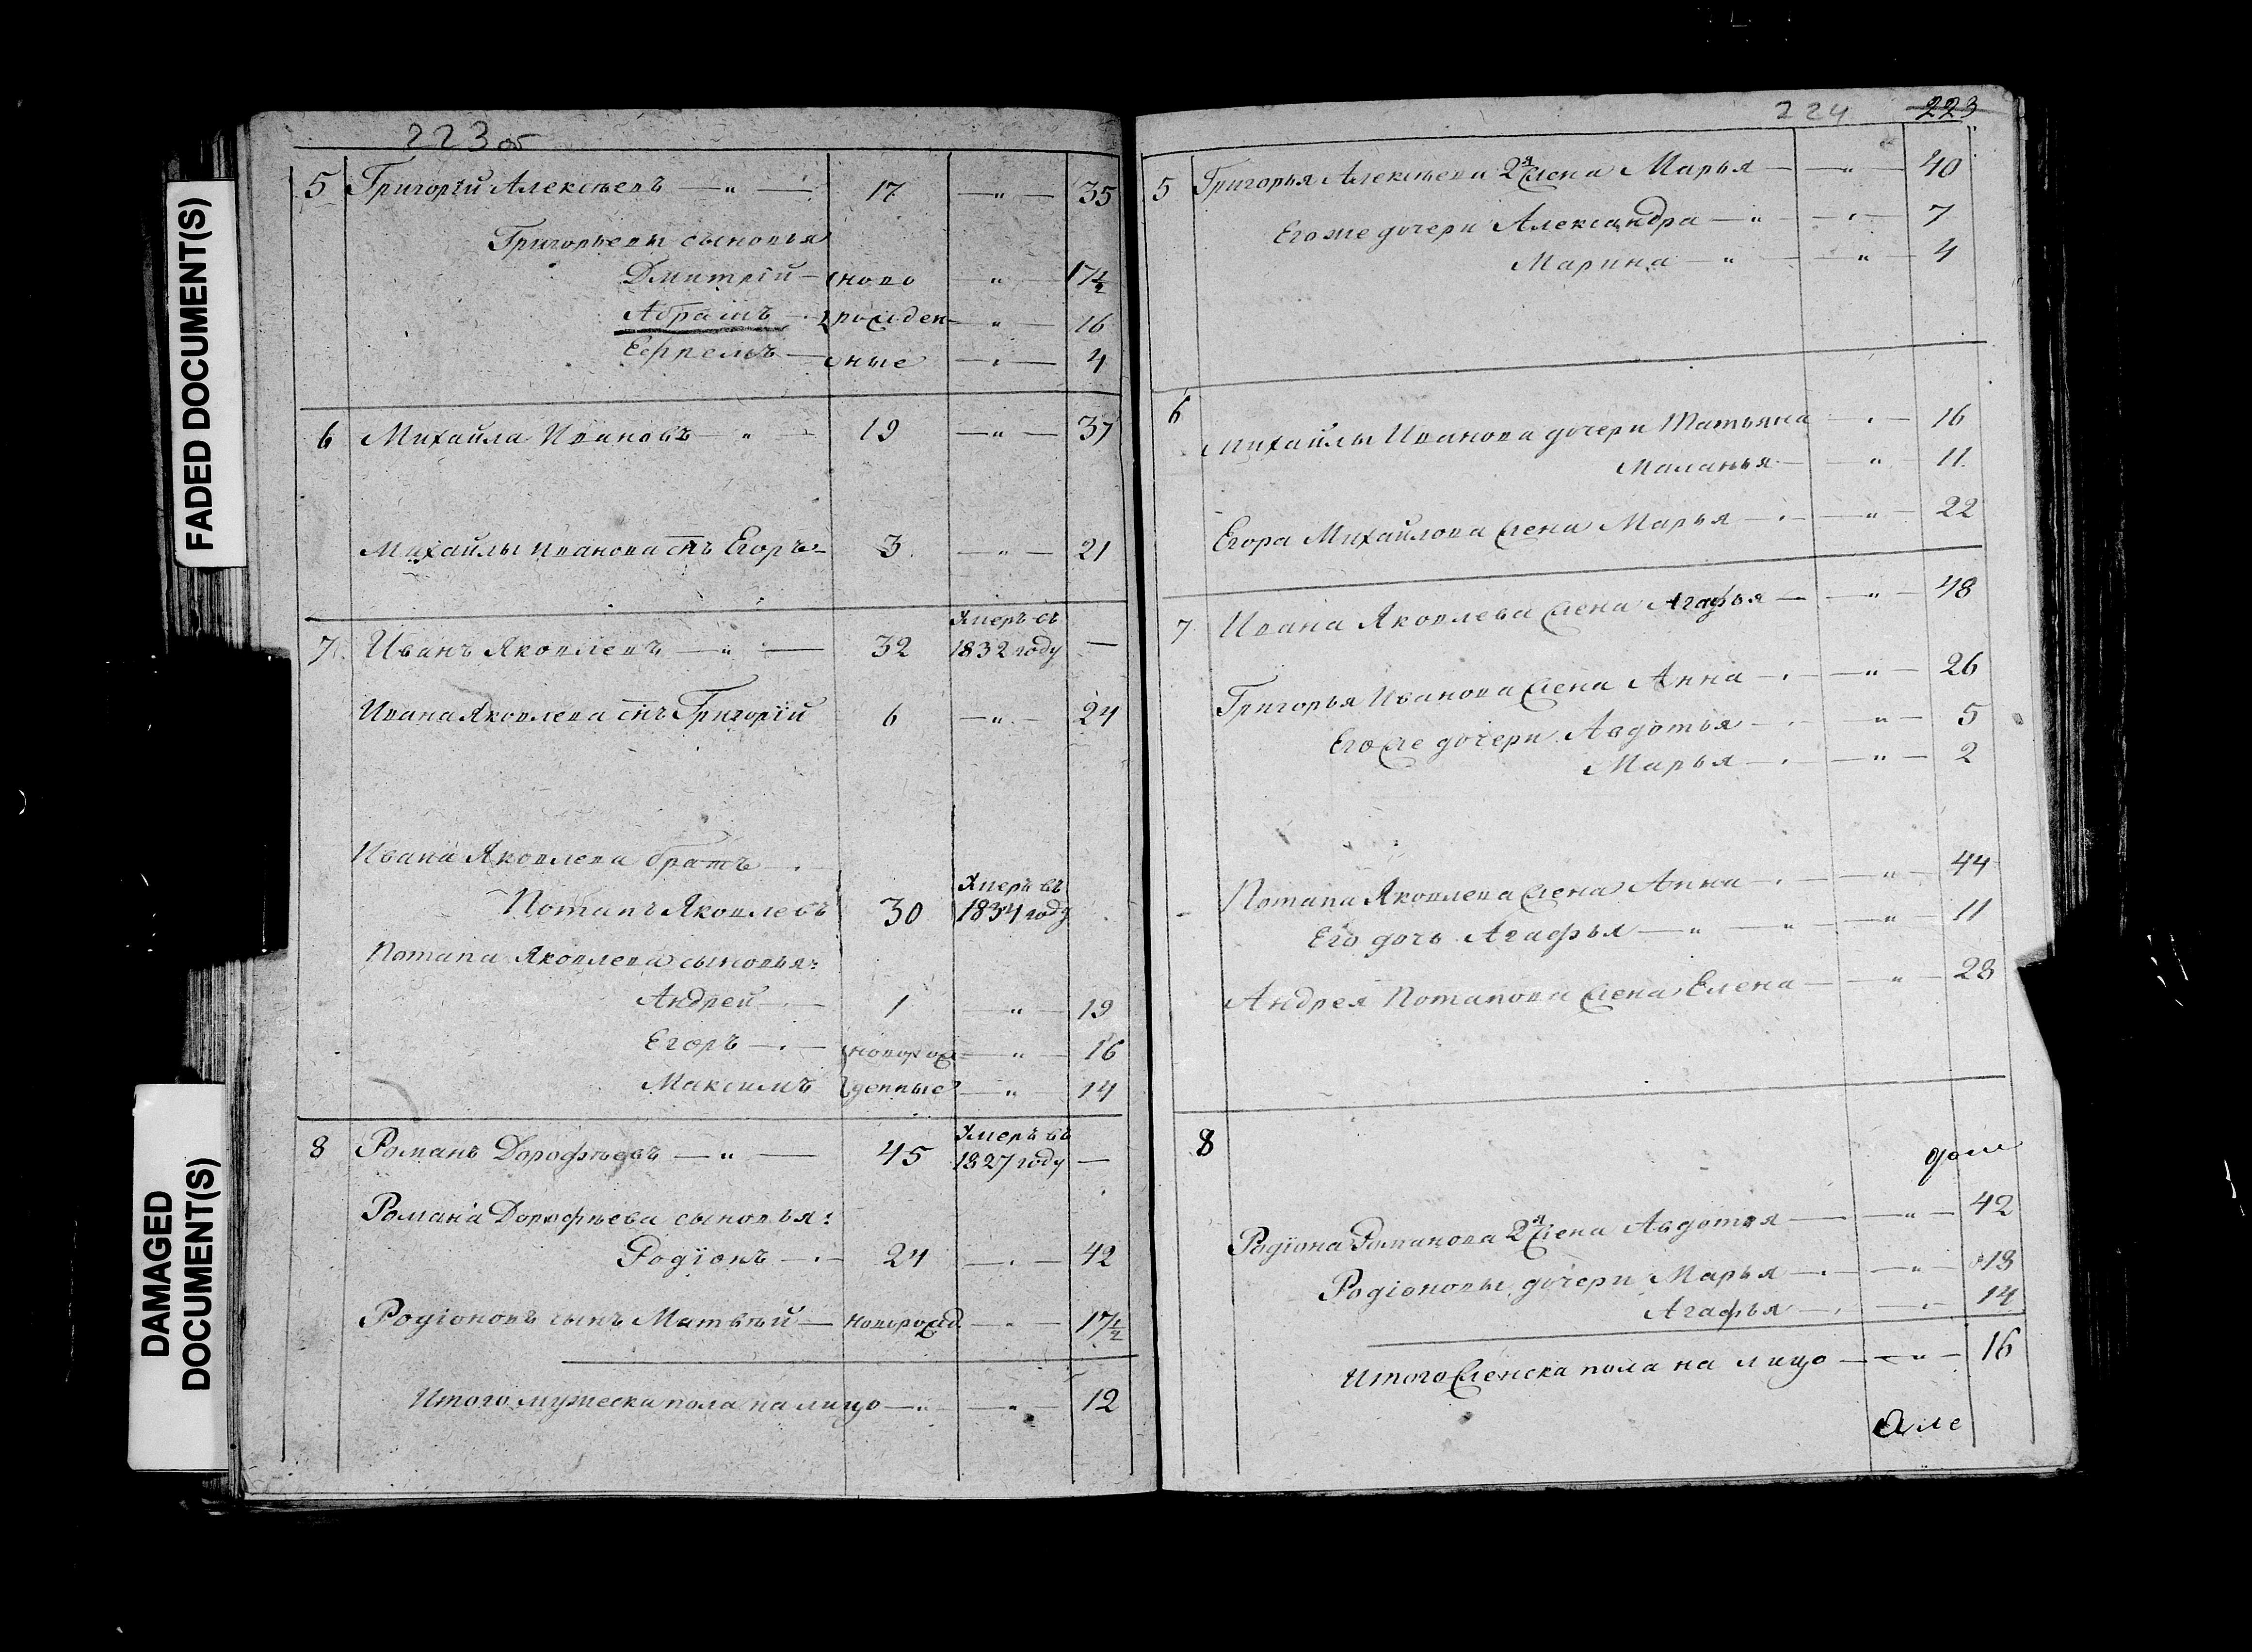 FADED DOCUMENT(S)
DAMAGED DOCUMENT(S)
223об
5 Григорій Алексѣевъ — „ — 17 — „ — 35
Григорьевы сыновья
Дмитрій — ново „ 17½
Абрамъ — рожден- „ 16
Ефремъ — ные — „ — 4
6 Михайла Ивановъ — „ — 19 — „ — 37
Михайлы Иванова снъ Егоръ — 3 — „ — 21
Умеръ въ
7 Иванъ Яковлевъ — „ — 32 1832 году —
Ивана Яковлева снъ Григорій 6 — „ — 24
Ивана Яковлева братъ
Умеръ въ
Потапъ Яковлевъ 30 1834 году
Потапа Яковлева сыновья:
Андрей — 1 — „ — 19
Егоръ — новорож — „ — 16
Максимъ денные — „ — 14
Умеръ въ
8 Романъ Дорофѣевъ — „ — 45 1827 году —
Романа Дорофѣева сыновья:
Родіонъ — 24 — „ — 42
Родіоновъ сынъ Матвѣй — новорожд. — „ — 17½
Итого мужеска пола на лицо — „ — „ — 12
224 223
5 Григорья Алексѣева 2я жена Марья — — „ — 40
Его же дочери Александра — „ — „ — 7
Марина — „ — „ — 4
6
Михайлы Иванова дочери Татьяна — „ — 16
Маланья — — „ — 11
Егора Михайлова жена Марья — — „ — 22
7 Ивана Яковлева жена Агафья — — „ — 48
Григорья Иванова жена Анна — — „ — 26
Его же дочери Авдотья — — „ — 5
Марья — — „ — 2
Потапа Яковлева жена Анна — — „ — 44
Его дочь Агафья — „ — „ — 11
Андрея Потапова жена Елена — — „ — 23
8
Родіона Романова 2я жена Авдотья — — „ — 42
Родіоновы дочери Марья — — „ — 18
Агафья — — „ — 14
Итого женска пола на лицо — — „ — 16